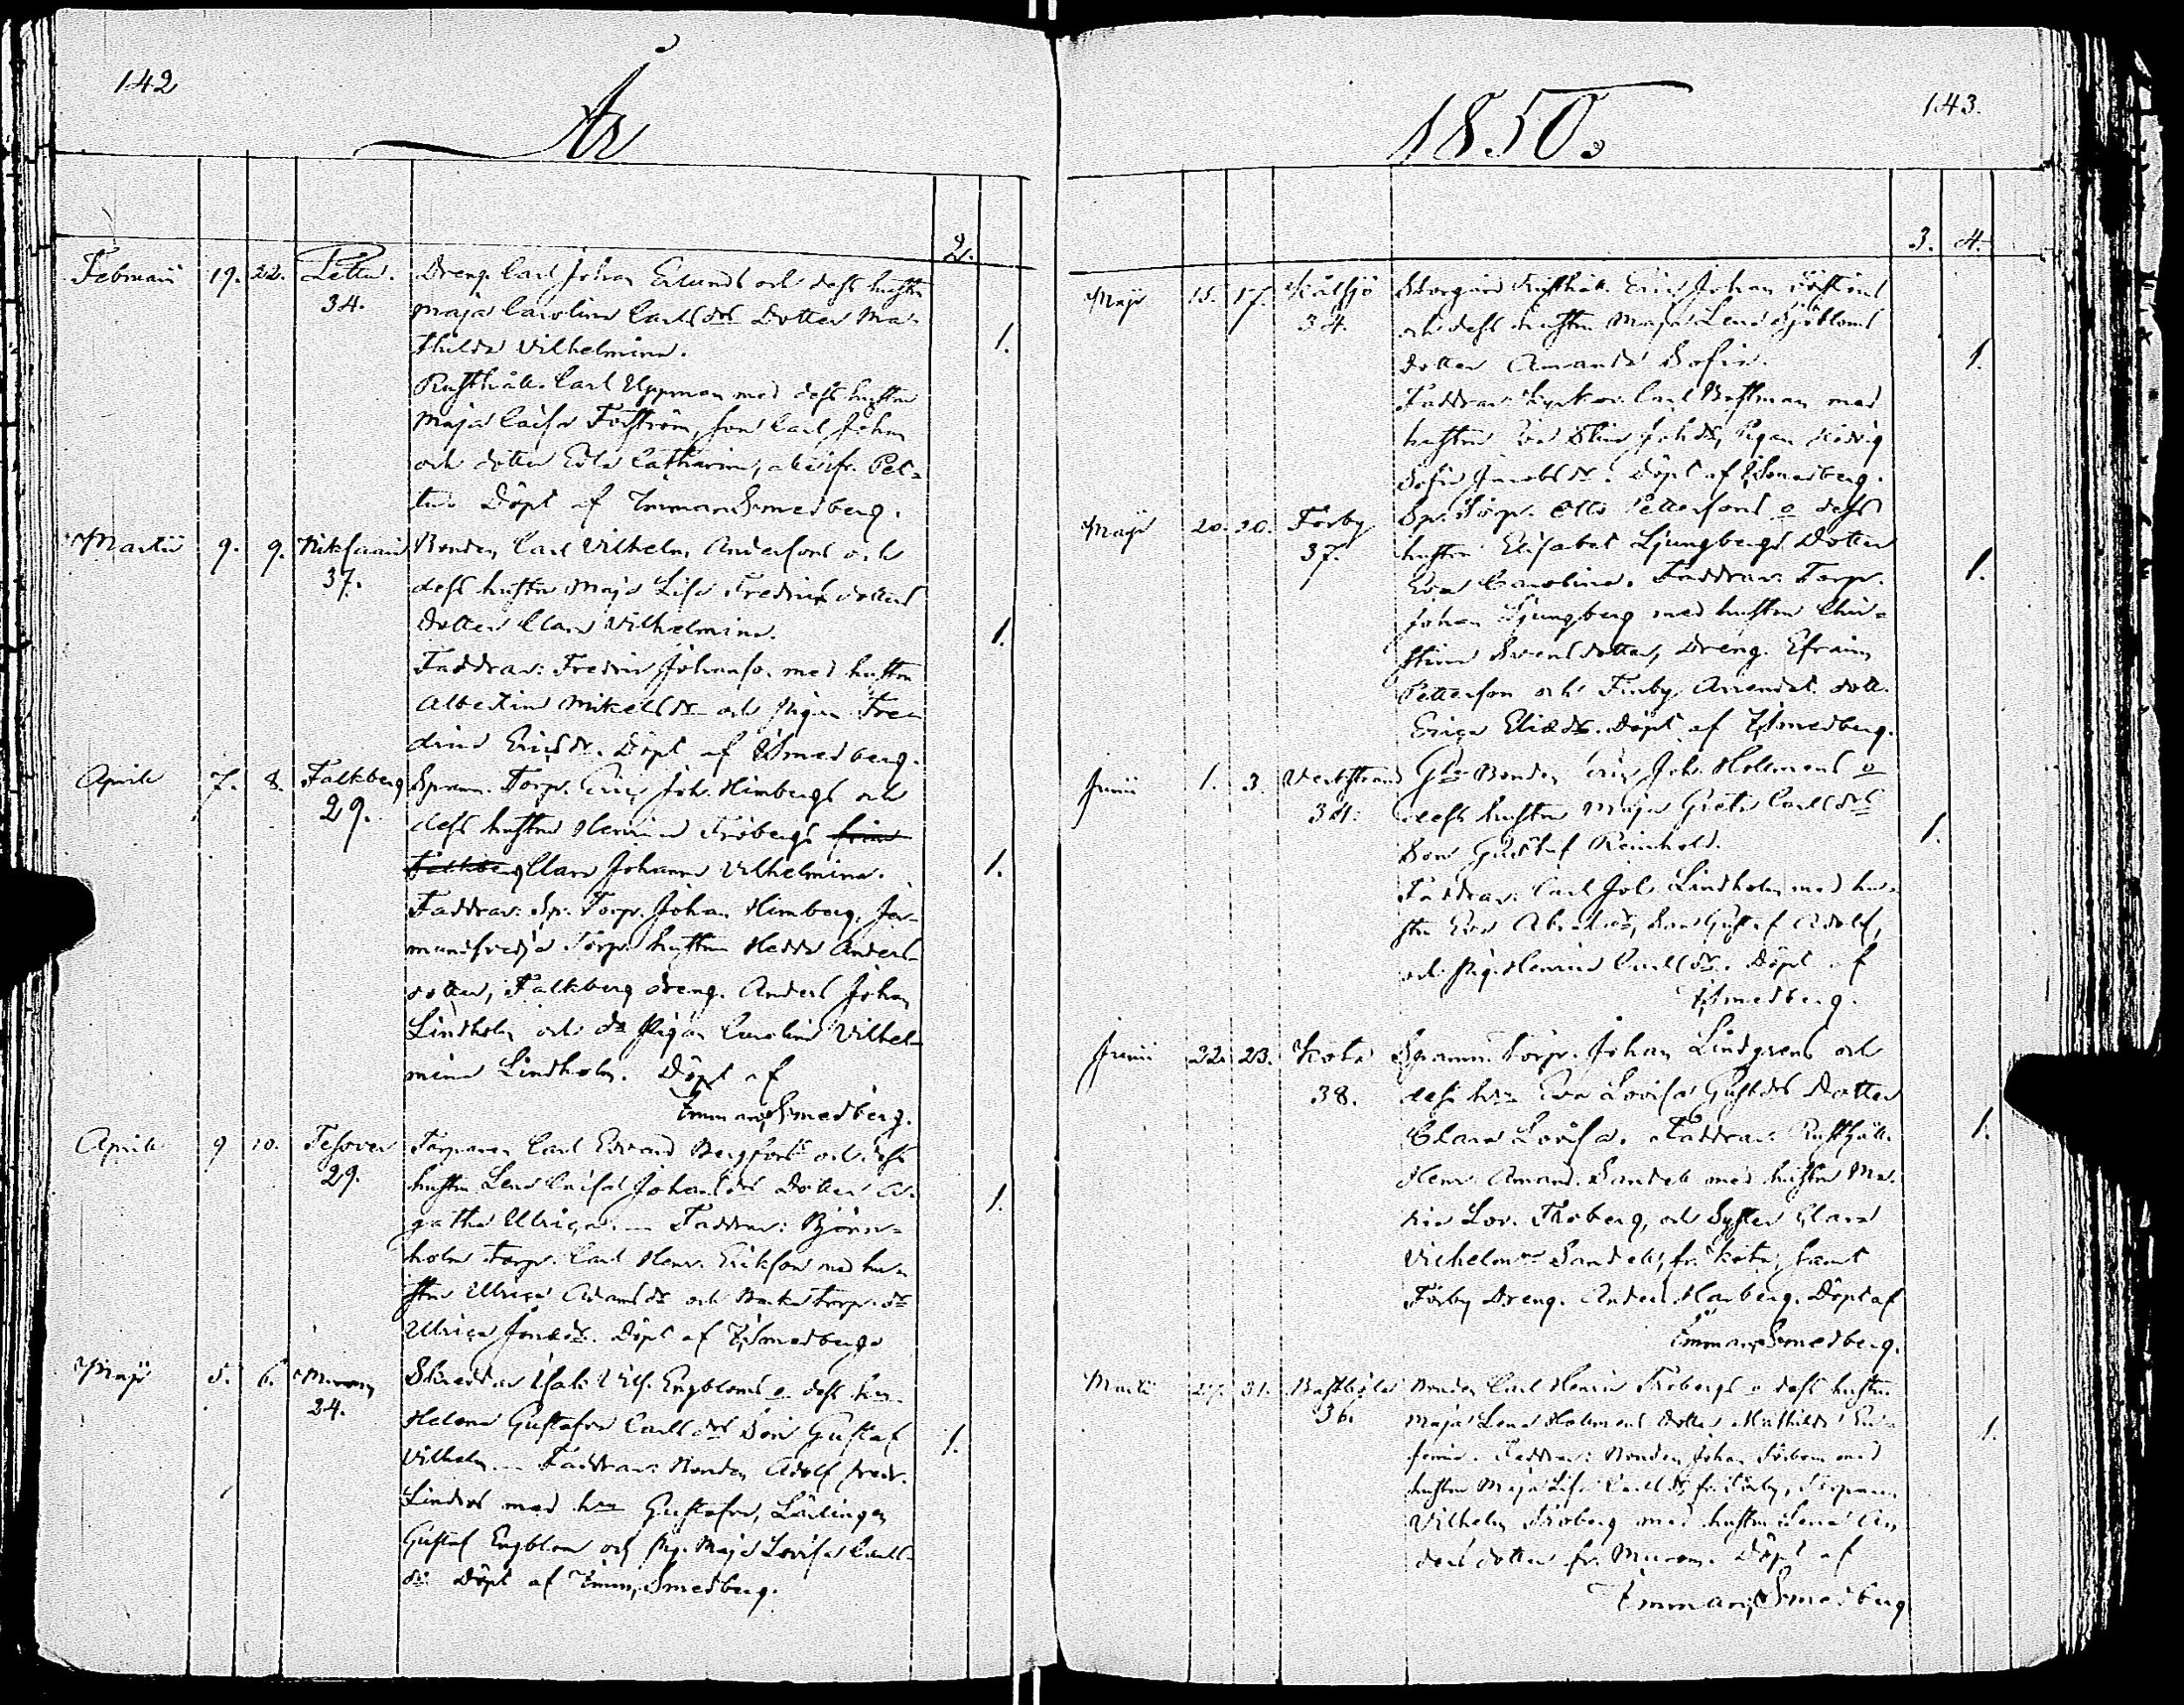 142
År
2.
Februarii 19. 22. Pettu. Dreng. Carl Johan Erlunds och dess hustru
34. Maja Carolina Carlsdrs Dotter Ma-
thilda Vilhelmina. 1.
Rusthåll. Carl Uppman med dess hustru
Maja Caisa Forsström, son Carl Johan
och dotter Eva Catharina, alla fr. Pet-
tu. Döpt af Emman Smedberg.
Martii 9. 9. Niksaari Bonden Carl Vilhelm Andersons och
37. dess hustru Maja Lisa Fredriks dotters
Dotter Clara Vilhelmina. 1.
Faddrar: Fredric Johanso. med hustru
Albertina Mikelsdr och Pigan Fre-
drica Ericsdr. Döpt af ESmedberg.
Aprile 7. 8. Falkberg Spann. Torp. Eric Joh. Himbergs och
29. dess hustru Henrica Fröbergs från
Falkberg Clara Johanna Vilhelmina. 1.
Faddrar: Sp. Torp. Johan Himberg,
Torp. hustrun Hedda Anders-
dotter, Falkberg dreng. Anders Johan
Lindholm och do Pigan Carolina Vilhel-
mina Lindholm. Döpt af
Emman Smedberg.
Aprile 9 10. Tesover Torparen Carl Edvard Bergfors och dess
29. hustru Lena Caisa Johansdrs Dotter A-
gatha Ulrica. — Faddrar: Björn- 1.
holm Torp. Carl Henr. Erikson med hu-
stru Ulrica Adamsdr och Backa Torp. dr
Ulrica Jonasdr. Döpt af ESmedberg
Maji 5. 6. Skreddar Isak Vilh. Engbloms o dess hu-
24. Helena Gustafva Carlsdrs Son Gustaf 1.
Vilhelm. — Faddrar: Bonden Adolf Fredr.
Linders med hru Gustafva, Lärlingen
Gustaf Engblom och Pig. Maja Lovisa Carls-
dr. Döpt af Emm. Smedberg.
1850.
143.
3. 4.
Maji 15. 17. Kålsjö Rusthåll. Eric Johan
34. och dess hustru Maja Lena Sjöbloms
dotter Amanda Sofia. 1.
Faddrar: Kyrkov. Carl Bastman med
hustru Eva Stina Johsdr, Pigan Hedvig
Sofia Jacobsdr. Döpt af ESmedberg.
Maji 20. 20. Förby Sp. Torp. Otto Pettersons o dess
37. hustru Elisabet Ljungbergs Dotter
Eva Carolina. Faddrar: Torp. 1.
Johan Ljungberg med hustru Chri-
stina Svensdotter, Dreng. Efraim
Petterson och Finby Arrendat. dott.
Erica Eliædr. Döpt af ESmedberg.
Junii 1. 3. Verkstrand Bonden Eric Joh. Holmens o
34. dess hustru Maja Greta Carlsdrs
Son Gustaf Reinhold. 1.
Faddrar: Carl Joh. Lindholm med hu-
stru Eva Abrahdr, Son Gustaf Adolf,
och Pig. Henrica Carlsdr. Döpt af
ESmedberg.
Junii 22. 23. Koto Spann. Torp. Johan Lindgrens och
38. dess hru Eva Lovisa Gustdrs Dotter
Clara Lovisa. Faddrar: Rusthåll. 1.
Henr. Amand. Sandell med hustru Ma-
ria Lov. Fröberg, och Syster Clara
Vilhelmina Sandell, fr. Koto, samt
Förby Dreng. Anders Harberg. Döpt af
Emman Smedberg.
Martii 27. 31. Bastböle Bonden Carl Henric Frebergs o dess hustru
36. Maja Lena Holmens dotter Mathilda Eu-
femia. Faddrar: Bonden Johan Förbom med 1.
hustru Maja Lisa Carlsdr fr. Förby, Torparen
Vilhelm Fröberg med hustru Lena An-
ders dotter fr. Murom. Döpt af
Emman Smedberg